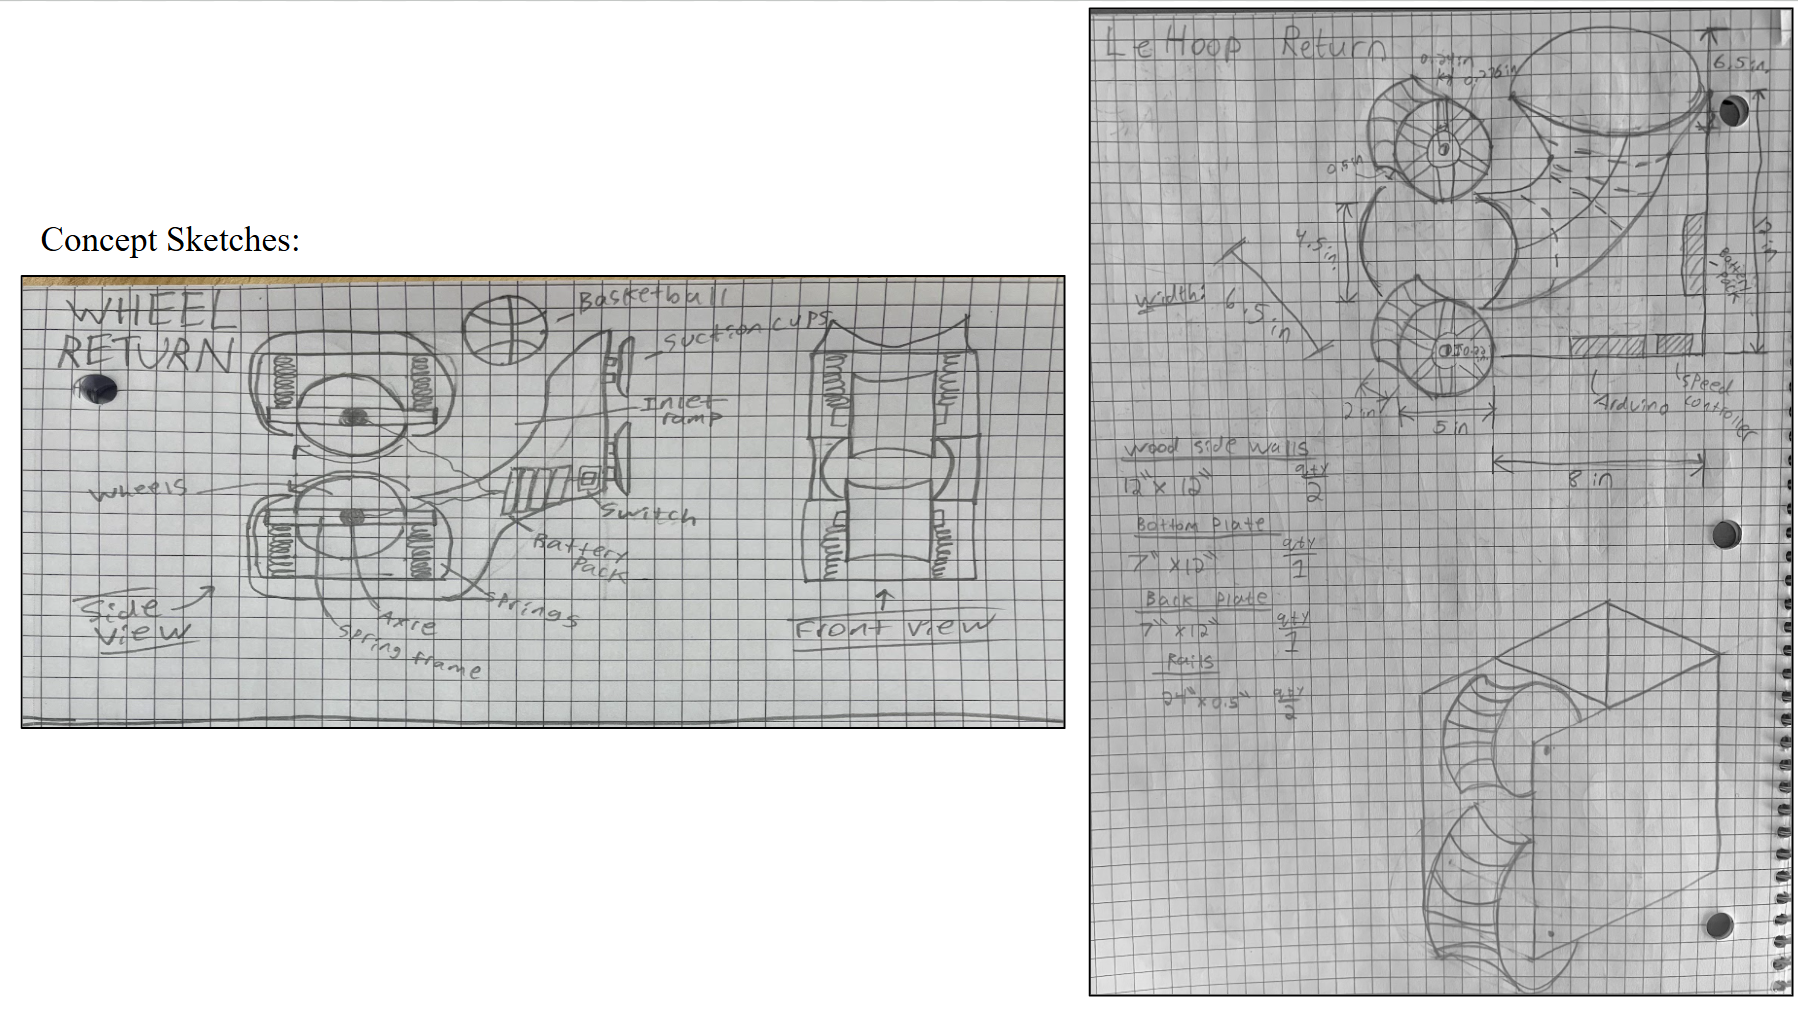 Concept Sketches:
WHEEL
RETURN
Basketball
Suction cups
Inlet
ramp
wheels
Switch
Battery
Pack
springs
Axie
spring frame
Side
view
Front view
Le Hoop Return
6.5in.
0.24in
0.276in
0.5in
4.5in.
12 in
Battery
Pack
width: 6.5in
2in
5in
8in
Arduino
speed
controller
wood side walls
12" x 12" qty 2
Bottom Plate
7" x12" qty 1
Back plate
7" x12" qty 1
Rails
24" x 0.5" qty 2